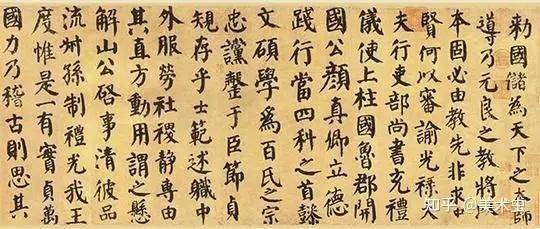 勅國儲為天下之本師
導乃元良之教將以
本固必由教先非求中
賢何以審諭光祿大
夫行吏部尚書充禮
儀使上柱國魯郡開
國公顏真卿立德
踐行當四科之首懿
文碩學為百氏之宗
忠讜罄于臣節貞
規存乎士範述職中
外服勞社稷靜專由
其直方動用謂之懸
解山公啓事清彼品
流叔孫制禮光我王
度惟是一有實貞萬
國力乃稽古則思其
知乎 @美术